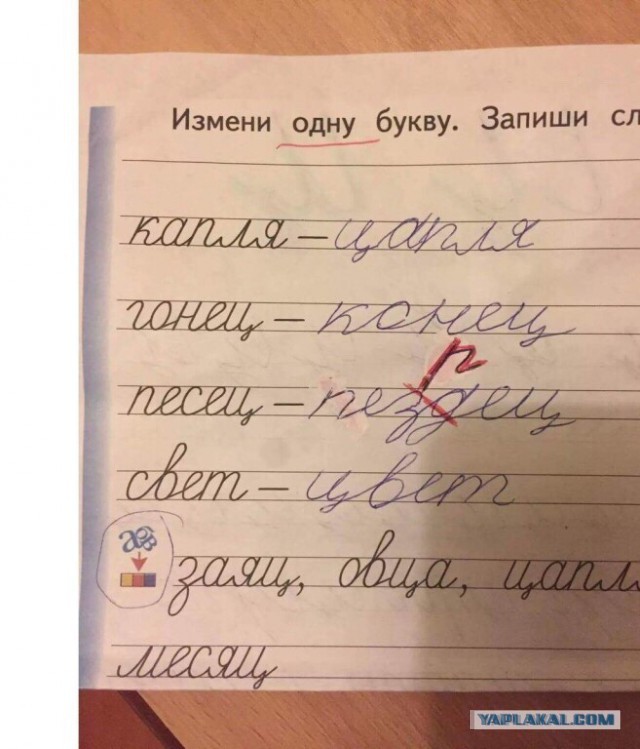 Измени одну букву. Запиши сл
капля – цапля
гонец – конец
р
песец – пездец
свет – цвет
абв
заяц, овца, цапл
месяц
YAPLAKAL.COM